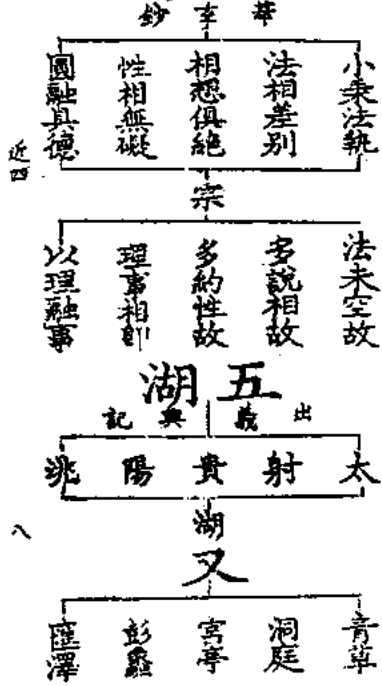 華玄鈔
小乘法執
法相差別
相想俱絕
性相無礙
圓融具德
近四
宗
法未空故
多說相故
多約性故
理事相即
以理融事
五湖
出義興記
太
射
貴
陽
洮
湖
八
又
青草
洞庭
宮亭
彭蠡
匯澤